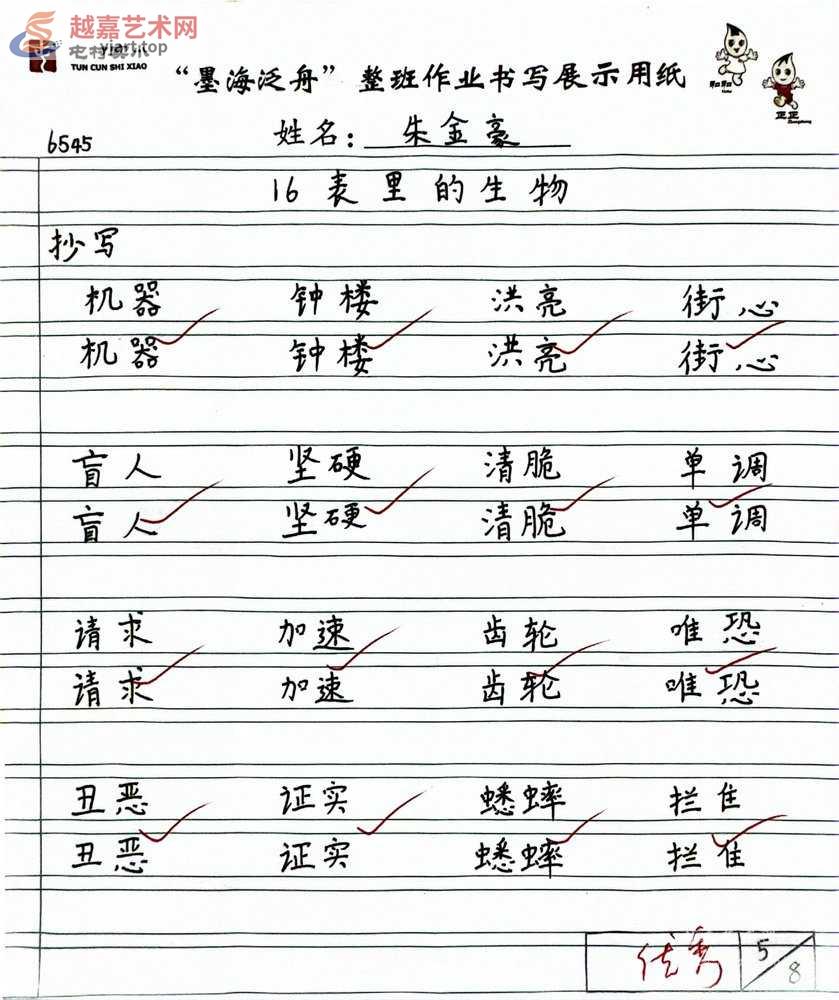 越嘉艺术网
yiart.top
TUN CUN SHI XIAO
“墨海泛舟”整班作业书写展示用纸
和和
正正
6545
姓名：朱金豪
16表里的生物
抄写
机器 钟楼 洪亮 街心
机器 钟楼 洪亮 街心
盲人 坚硬 清脆 单调
盲人 坚硬 清脆 单调
请求 加速 齿轮 唯恐
请求 加速 齿轮 唯恐
丑恶 证实 蟋蟀 拦住
丑恶 证实 蟋蟀 拦住
优秀 5/8